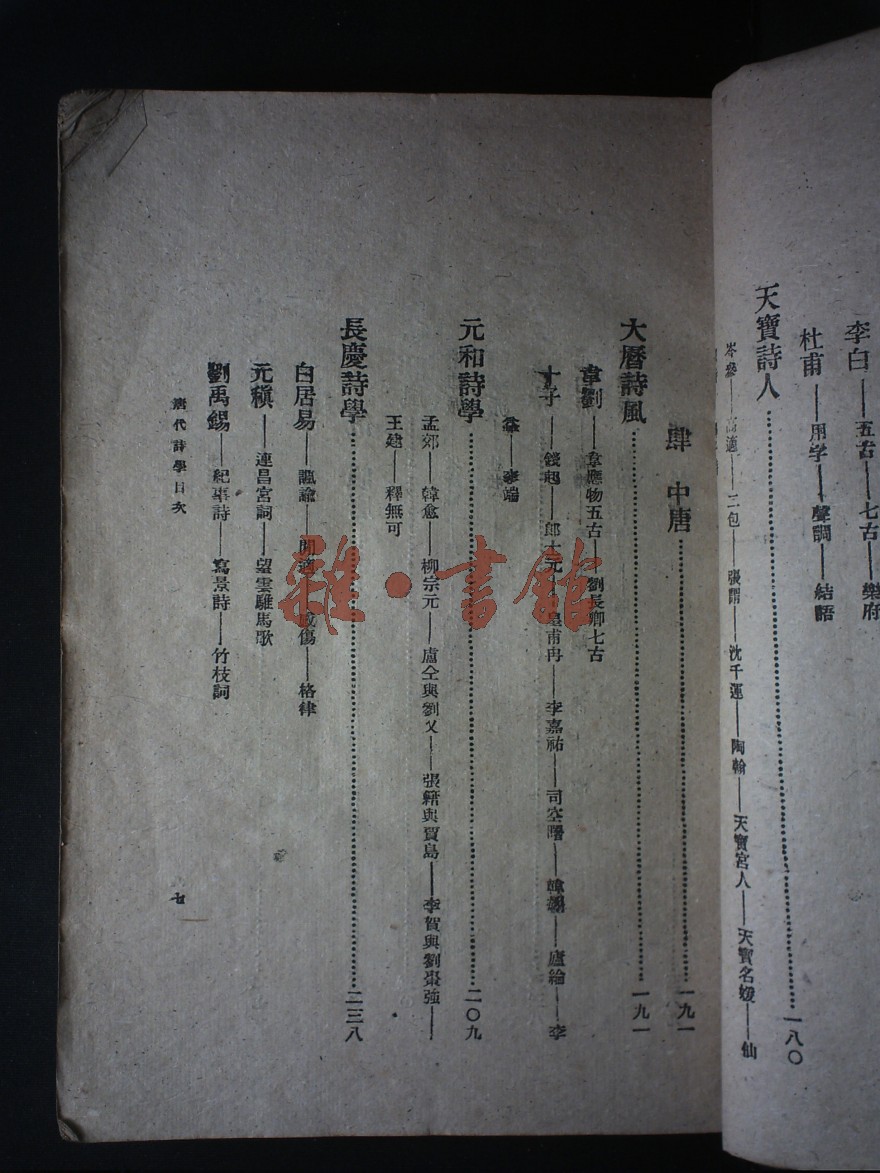 李白——五古——七古——樂府
杜甫——用字——聲調——結語
天寶詩人……一八〇
岑參——高適——三包——張謂——沈千運——陶翰——天寶宮人——天寶名媛——仙
肆 中唐……一九一
大曆詩風……一九一
韋劉——韋應物五古——劉長卿七古
十子——錢起——郎士元——皇甫冉——李嘉祐——司空曙——韓翃——盧綸——李
益——李端
元和詩學……二〇九
孟郊——韓愈——柳宗元——盧仝與劉叉——張籍與賈島——李賀與劉棗強——
王建——釋無可
長慶詩學……二三八
白居易——諷諭——閒適——感傷——格律
元稹——連昌宮詞——望雲騅馬歌
劉禹錫——紀事詩——寫景詩——竹枝詞
唐代詩學目次
七
雜·書館